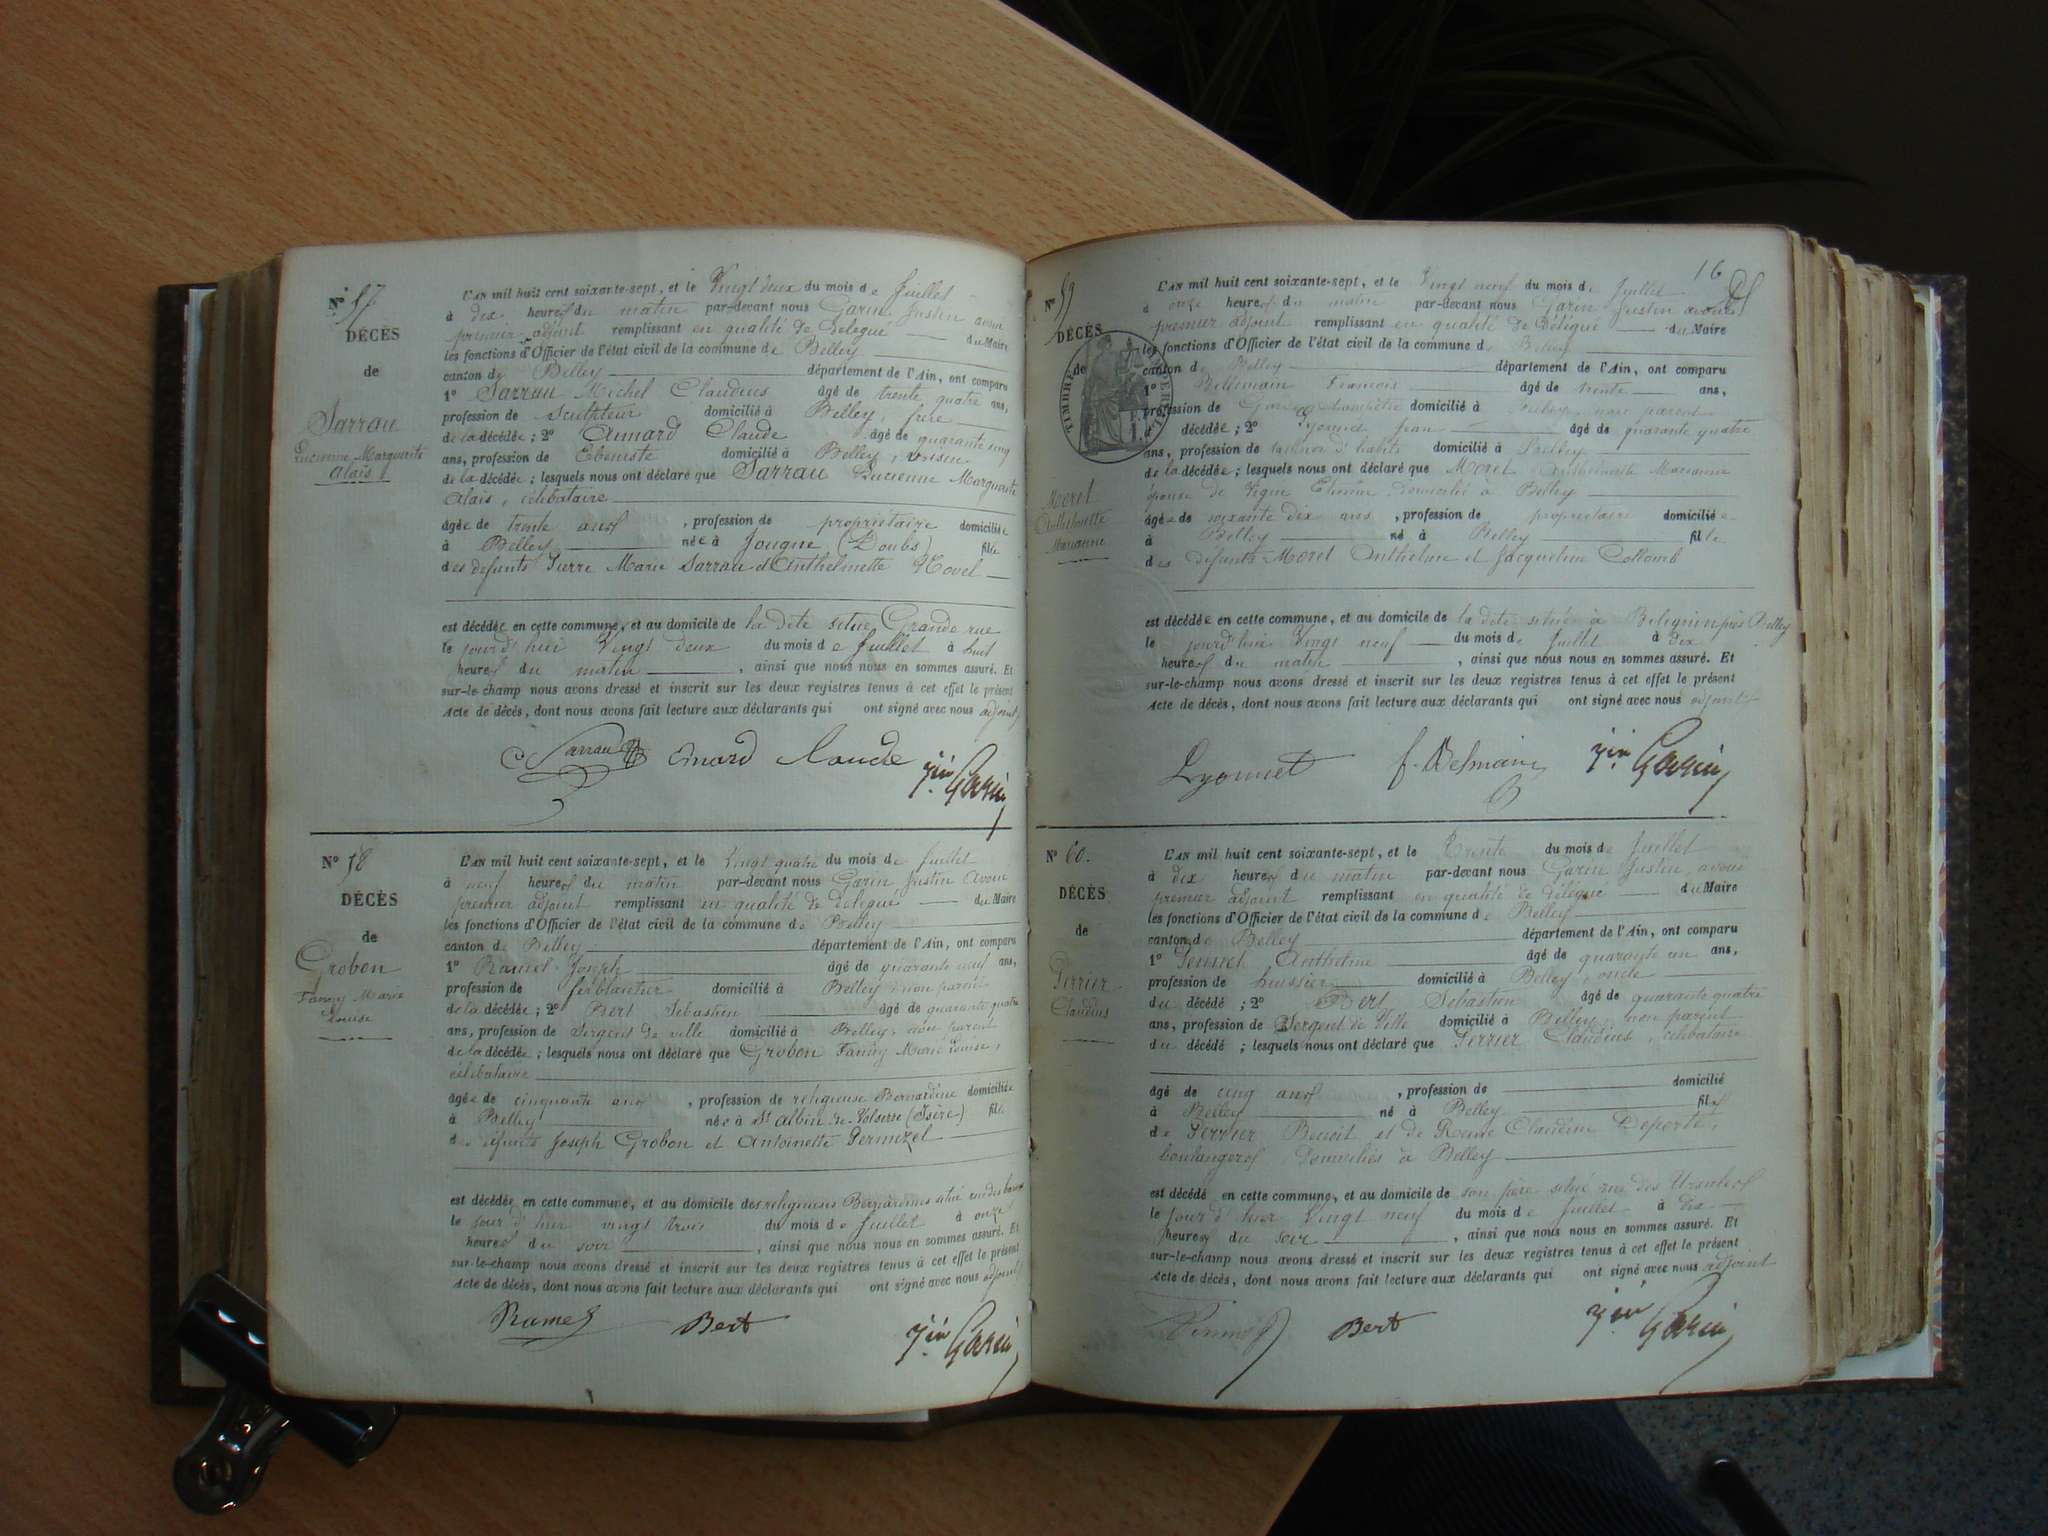 N° 57
DÉCÈS
de
Sarrau
Lucienne Marguerite
Alais
L'AN mil huit cent soixante-sept, et le Vingt deux du mois de Juillet
à dix heures du matin par-devant nous Garin Justin avoué
premier adjoint remplissant en qualité de Délégué du Maire
les fonctions d'Officier de l'état civil de la commune de Belley
canton de Belley département de l'Ain, ont comparu
1° Sarrau Michel Claudius âgé de trente quatre ans,
profession de Sculpteur domicilié à Belley, frère
de la décédée ; 2° Aimard Claude âgé de quarante cinq
ans, profession de Ebeniste domicilié à Belley, voisin
de la décédée ; lesquels nous ont déclaré que Sarrau Lucienne Marguerite
Alais, célibataire
âgée de trente ans , profession de propriétaire domiciliée
à Belley née à Jougne (Doubs) fille
des défunts Pierre Marie Sarrau et Anthelmette
est décédée en cette commune, et au domicile de la dite situé Grande rue
le jourd'hui Vingt deux du mois de Juillet à huit
heures du matin , ainsi que nous nous en sommes assuré. Et
sur-le-champ nous avons dressé et inscrit sur les deux registres tenus à cet effet le présent
Acte de décès, dont nous avons fait lecture aux déclarants qui ont signé avec nous adjoint
C Sarrau Claude Jin Garin
N° 58
DÉCÈS
de
Grobon
Fanny Marie
Louise
L'AN mil huit cent soixante-sept, et le Vingt quatre du mois de Juillet
à neuf heures du matin par-devant nous Garin Justin Avoué
premier adjoint remplissant en qualité de délégué du Maire
les fonctions d'Officier de l'état civil de la commune de Belley
canton de Belley département de l'Ain, ont comparu
1° Ramel Joseph âgé de quarante neuf ans,
profession de ferblantier domicilié à Belley non parent
de la décédée ; 2° Bert Sébastien âgé de quarante quatre
ans, profession de Sergent de ville domicilié à Belley, non parent
de la décédée ; lesquels nous ont déclaré que Grobon Fanny Marie Louise,
célibataire
âgée de cinquante ans , profession de religieuse Bernardine domiciliée
à Belley née à St Albin de (Isère) fille
de défunts Joseph Grobon et Antoinette
est décédée en cette commune, et au domicile des religieuses Bernardines situé
le jour d'hier vingt trois du mois de Juillet à onze
heures du soir , ainsi que nous nous en sommes assuré. Et
sur-le-champ nous avons dressé et inscrit sur les deux registres tenus à cet effet le présent
Acte de décès, dont nous avons fait lecture aux déclarants qui ont signé avec nous adjoint
Ramel Bert Jin Garin
16
N° 59
DÉCÈS
de
TIMBRE IMPÉRIAL
Morel
Anthelmette
Marianne
L'AN mil huit cent soixante-sept, et le Vingt neuf du mois de Juillet
à onze heures du matin par-devant nous Garin Justin avoué
premier adjoint remplissant en qualité de Délégué du Maire
les fonctions d'Officier de l'état civil de la commune de Belley
canton de Belley département de l'Ain, ont comparu
1° Bellemain François âgé de trente ans,
profession de Garde champêtre domicilié à Belley, non parent
décédée ; 2° Lyonnet Jean âgé de quarante quatre
ans, profession de tailleur d'habits domicilié à Belley
de la décédée ; lesquels nous ont déclaré que Morel Anthelmette Marianne
épouse de Etienne domiciliée à Belley
âgée de soixante dix ans , profession de propriétaire domiciliée
à Belley né à Belley fille
des défunts Morel Anthelme et Jacqueline Collomb
est décédée en cette commune, et au domicile de la dite située à Bélignin près Belley
le jourd'hui Vingt neuf du mois de Juillet à dix
heures du matin , ainsi que nous nous en sommes assuré. Et
sur-le-champ nous avons dressé et inscrit sur les deux registres tenus à cet effet le présent
Acte de décès, dont nous avons fait lecture aux déclarants qui ont signé avec nous adjoint
Lyonnet f. Belmain Jin Garin
N° 60.
DÉCÈS
de
Perrier
Claudius
L'AN mil huit cent soixante-sept, et le Trente du mois de Juillet
à dix heures du matin par-devant nous Garin Justin avoué
premier adjoint remplissant en qualité de délégué du Maire
les fonctions d'Officier de l'état civil de la commune de Belley
canton de Belley département de l'Ain, ont comparu
1° Anthelme âgé de quarante un ans,
profession de huissier domicilié à Belley, oncle
du décédé ; 2° Bert Sébastien âgé de quarante quatre
ans, profession de Sergent de Ville domicilié à Belley, non parent
du décédé ; lesquels nous ont déclaré que Perrier Claudius, célibataire
âgé de cinq ans , profession de domicilié
à Belley né à Belley fils
de Perrier Benoit et de Reine Claudine Deporte,
boulangers domiciliés à Belley
est décédé en cette commune, et au domicile de son père situé rue des Ursules
le jour d'hier Vingt neuf du mois de Juillet à dix
heures du soir , ainsi que nous nous en sommes assuré. Et
sur-le-champ nous avons dressé et inscrit sur les deux registres tenus à cet effet le présent
Acte de décès, dont nous avons fait lecture aux déclarants qui ont signé avec nous adjoint
Bert Jin Garin